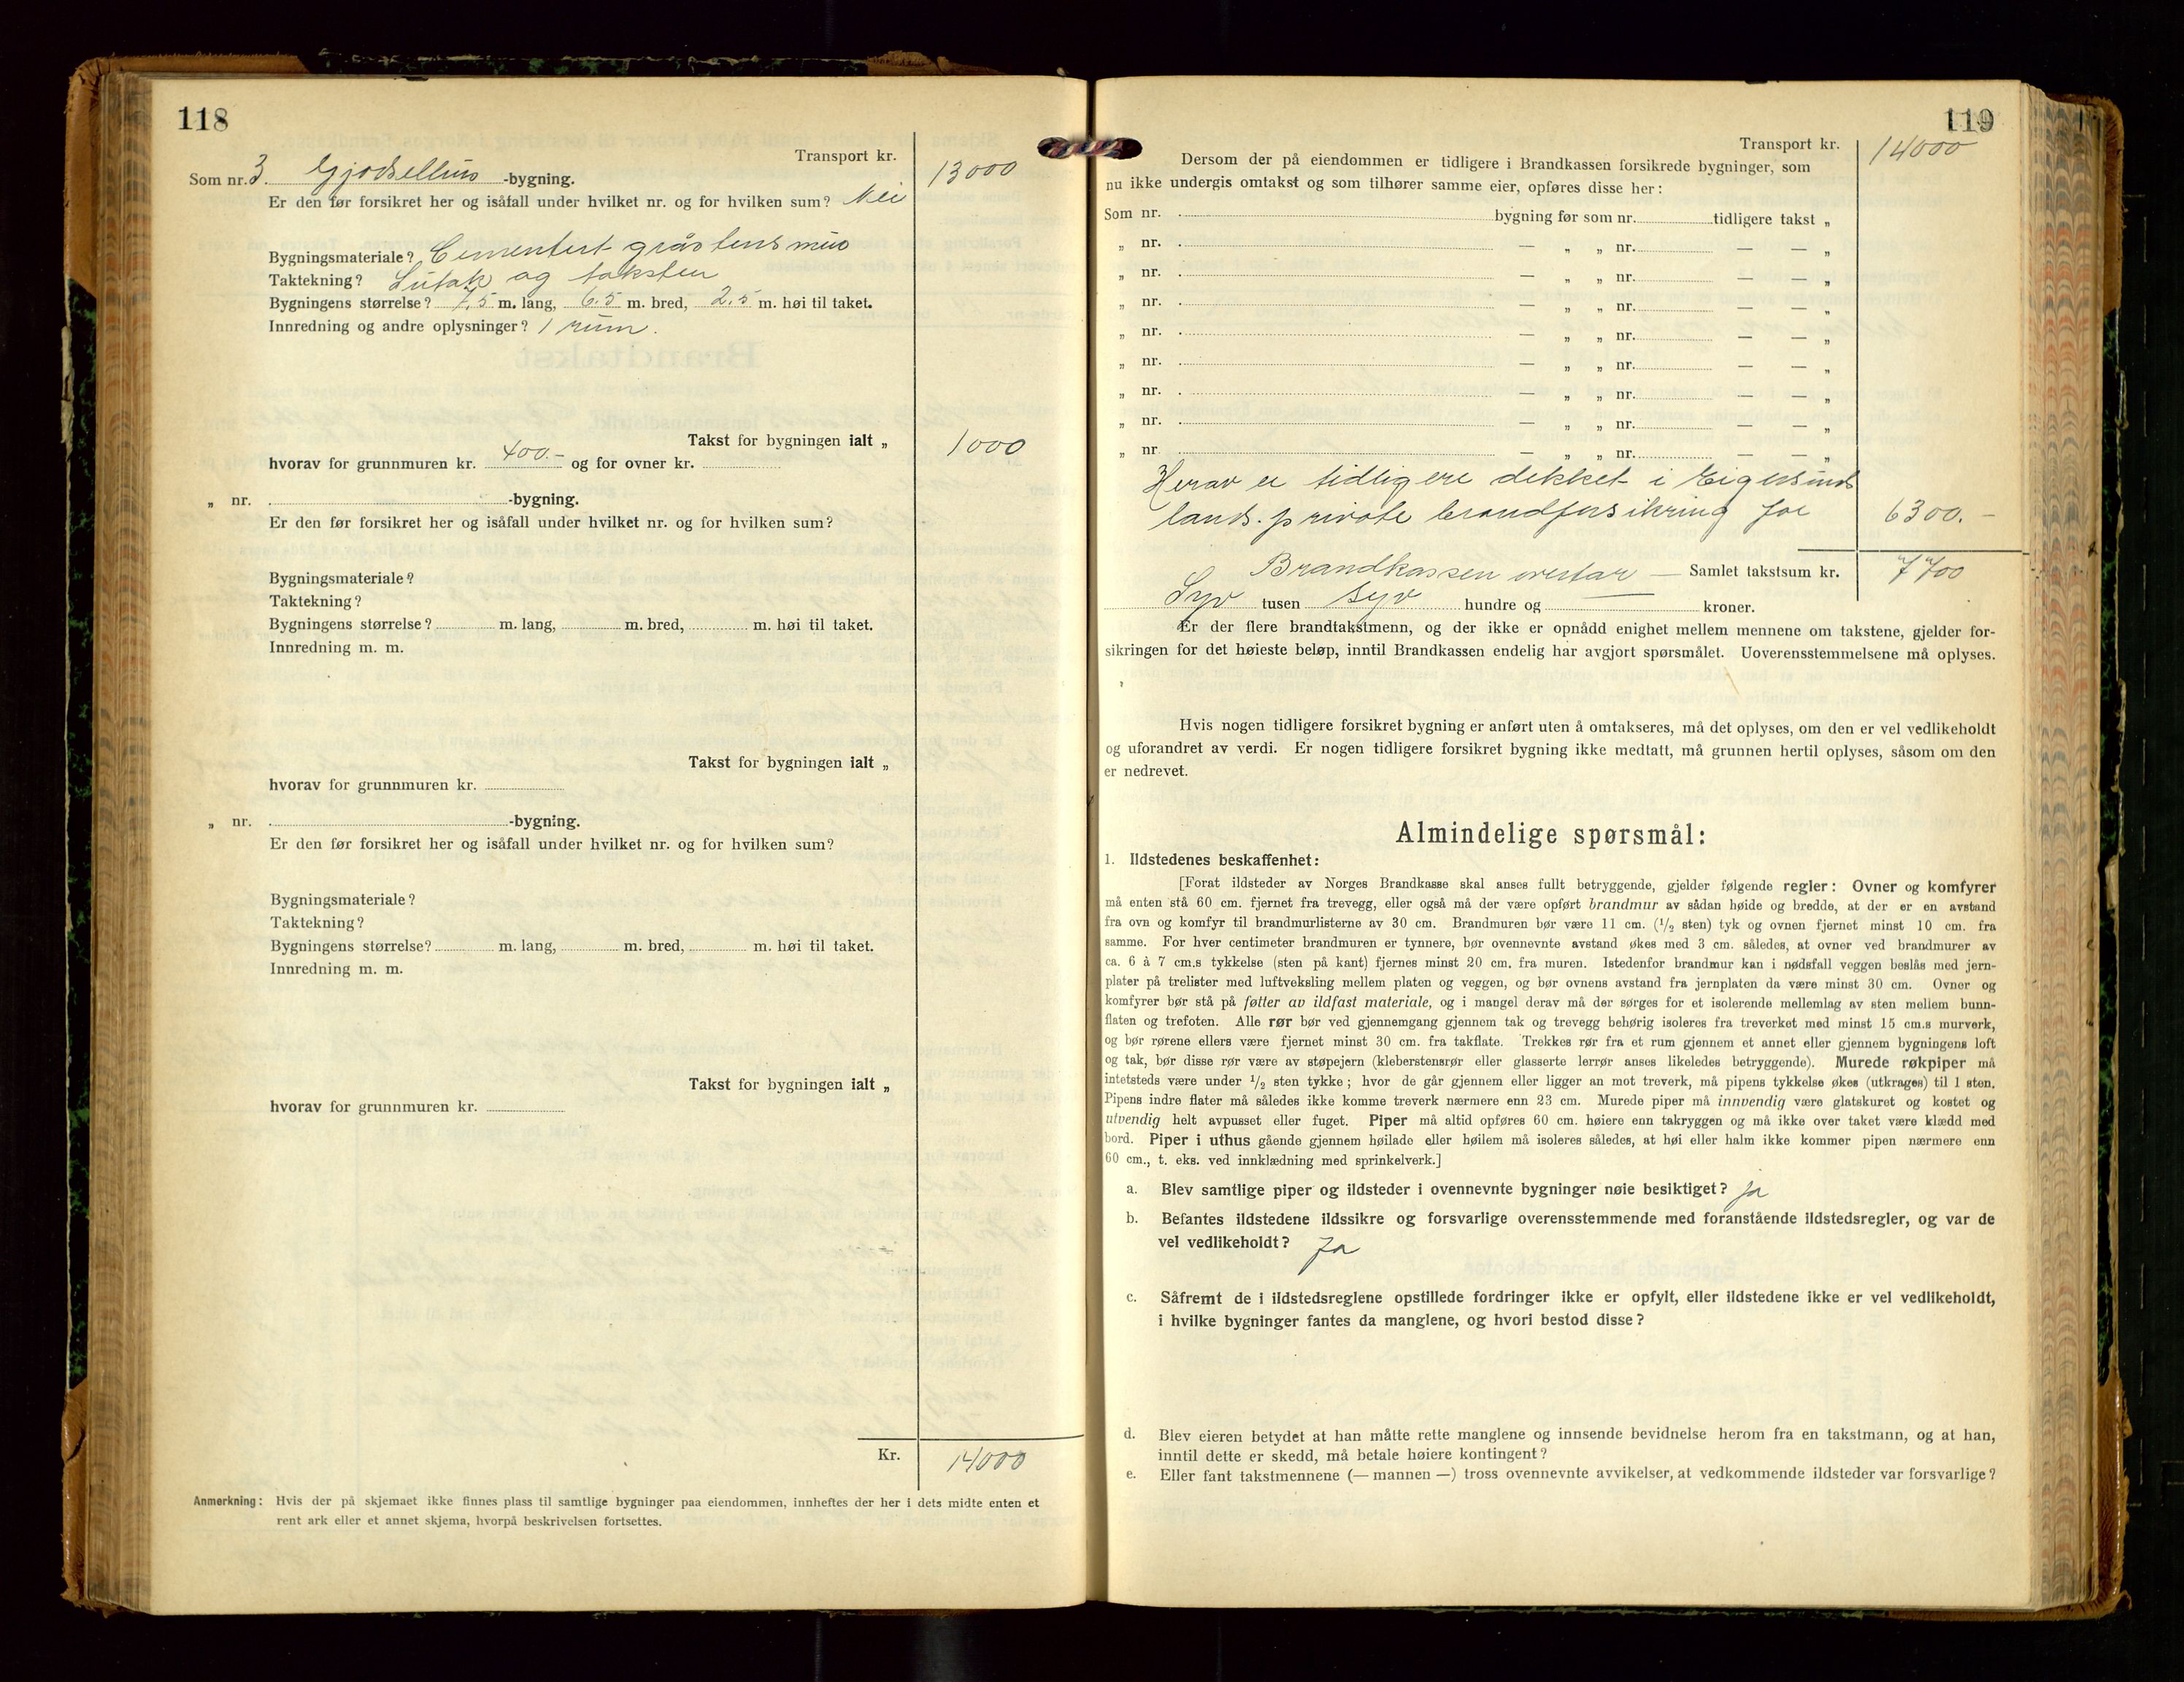 118
Transport kr. 13000
Som nr. 3. Gjødselhus -bygning.
Er den før forsikret her og isåfall under hvilket nr. og for hvilken sum? Nei
Bygningsmateriale? Cementert gråstensmur
Taktekning? Sutak og taksten
Bygningens størrelse? 7,5 m. lang, 6.5 m. bred, 2.5 m. høi til taket.
Innredning og andre oplysninger? 1 rum.
Takst for bygningen ialt „ 1000
hvorav for grunnmuren kr. 400.- og for ovner kr.
„ nr. -bygning.
Er den før forsikret her og isåfall under hvilket nr. og for hvilken sum?
Bygningsmateriale?
Taktekning?
Bygningens størrelse? m. lang, m. bred, m. høi til taket.
Innredning m. m.
Takst for bygningen ialt „
hvorav for grunnmuren kr.
„ nr. -bygning.
Er den før forsikret her og isåfall under hvilket nr. og for hvilken sum?
Bygningsmateriale?
Taktekning?
Bygningens størrelse? m. lang, m. bred, m. høi til taket.
Innredning m. m.
Takst for bygningen ialt „
hvorav for grunnmuren kr.
Kr. 14000
Anmerkning: Hvis der på skjemaet ikke finnes plass til samtlige bygninger paa eiendommen, innheftes der her i dets midte enten et
rent ark eller et annet skjema, hvorpå beskrivelsen fortsettes.
119
Transport kr. 14000
Dersom der på eiendommen er tidligere i Brandkassen forsikrede bygninger, som
nu ikke undergis omtakst og som tilhører samme eier, opføres disse her:
Som nr. bygning før som nr. tidligere takst „
„ nr. — „ „ nr. — — „
„ nr. — „ „ nr. — — „
„ nr. — „ „ nr. — — „
„ nr. — „ „ nr. — — „
„ nr. — „ „ nr. — — „
„ nr. — „ „ nr. — — „
„ nr. — „ „ nr. — — „
„ nr. — „ „ nr. — — „
Herav er tidligere dekket i Eigersunds
lands. private brandforsikring for 6300.-
Brandkassen overtar — Samlet takstsum kr. 7700
Syv tusen syv hundre og kroner.
Er der flere brandtakstmenn, og der ikke er opnådd enighet mellem mennene om takstene, gjelder for-
sikringen for det høieste beløp, inntil Brandkassen endelig har avgjort spørsmålet. Uoverensstemmelsene må oplyses.
Hvis nogen tidligere forsikret bygning er anført uten å omtakseres, må det oplyses, om den er vel vedlikeholdt
og uforandret av verdi. Er nogen tidligere forsikret bygning ikke medtatt, må grunnen hertil oplyses, såsom om den
er nedrevet.
Almindelige spørsmål:
1. Ildstedenes beskaffenhet:
[Forat ildsteder av Norges Brandkasse skal anses fullt betryggende, gjelder følgende regler: Ovner og komfyrer
må enten stå 60 cm. fjernet fra trevegg, eller også må der være opført brandmur av sådan høide og bredde, at der er en avstand
fra ovn og komfyr til brandmurlisterne av 30 cm. Brandmuren bør være 11 cm. (1/2 sten) tyk og ovnen fjernet minst 10 cm. fra
samme. For hver centimeter brandmuren er tynnere, bør ovennevnte avstand økes med 3 cm. således, at ovner ved brandmurer av
ca. 6 à 7 cm.s tykkelse (sten på kant) fjernes minst 20 cm. fra muren. Istedenfor brandmur kan i nødsfall veggen beslås med jern-
plater på trelister med luftveksling mellem platen og veggen, og bør ovnens avstand fra jernplaten da være minst 30 cm. Ovner og
komfyrer bør stå på føtter av ildfast materiale, og i mangel derav må der sørges for et isolerende mellemlag av sten mellem bunn-
flaten og trefoten. Alle rør bør ved gjennemgang gjennem tak og trevegg behørig isoleres fra treverket med minst 15 cm.s murverk,
og bør rørene ellers være fjernet minst 30 cm. fra takflate. Trekkes rør fra et rum gjennem et annet eller gjennem bygningens loft
og tak, bør disse rør være av støpejern (kleberstensrør eller glasserte lerrør anses likeledes betryggende). Murede røkpiper må
intetsteds være under 1/2 sten tykke; hvor de går gjennem eller ligger an mot treverk, må pipens tykkelse økes (utkrages) til 1 sten.
Pipens indre flater må således ikke komme treverk nærmere enn 23 cm. Murede piper må innvendig være glatskuret og kostet og
utvendig helt avpusset eller fuget. Piper må altid opføres 60 cm. høiere enn takryggen og må ikke over taket være klædd med
bord. Piper i uthus gående gjennem høilade eller høilem må isoleres således, at høi eller halm ikke kommer pipen nærmere enn
60 cm., t. eks. ved innklædning med sprinkelverk.]
a. Blev samtlige piper og ildsteder i ovennevnte bygninger nøie besiktiget? ja
b. Befantes ildstedene ildssikre og forsvarlige overensstemmende med foranstående ildstedsregler, og var de
vel vedlikeholdt? Ja
c. Såfremt de i ildstedsreglene opstillede fordringer ikke er opfylt, eller ildstedene ikke er vel vedlikeholdt,
i hvilke bygninger fantes da manglene, og hvori bestod disse?
d. Blev eieren betydet at han måtte rette manglene og innsende bevidnelse herom fra en takstmann, og at han,
inntil dette er skedd, må betale høiere kontingent?
e. Eller fant takstmennene (— mannen —) tross ovennevnte avvikelser, at vedkommende ildsteder var forsvarlige?